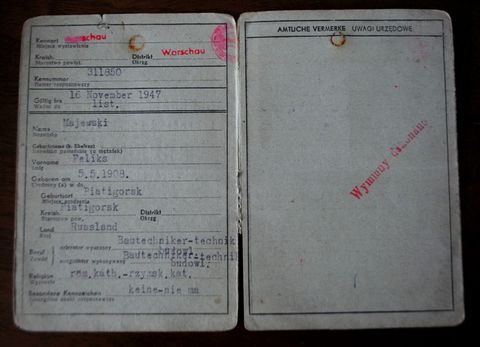 Kennort Warschau
Miejsce wystawienia
Kreish. Distrikt Warschau
Starostwo powiat. Okrąg
Kennummer 311850
Numer rozpoznawczy
Gültig bis 16 November 1947
Ważna do list.
Name Majewski
Nazwisko
Geburtsname (b. Ehefrau)
Nazwisko panieńskie (u mężatek)
Vorname Feliks
Imię
Geboren am 5.5.1908.
Urodzony (a) w dn.
Geburtsort Piatigorsk
Miejsce urodzenia
Kreish. Piatigorsk Distrikt
Starostwo pow. Okrąg
Land Russland
Kraj
Beruf Bautechniker-technik
Zawód wyuczony budowl.
Bautechniker-technik
wykonywany budowl.
Religion röm.kath.-rzymsk.kat.
Wyznanie
Besondere Kennzeichen keine-nie ma
Szczególne znaki rozpoznawcze
AMTLICHE VERMERKE UWAGI URZĘDOWE
Wymiany dokonano